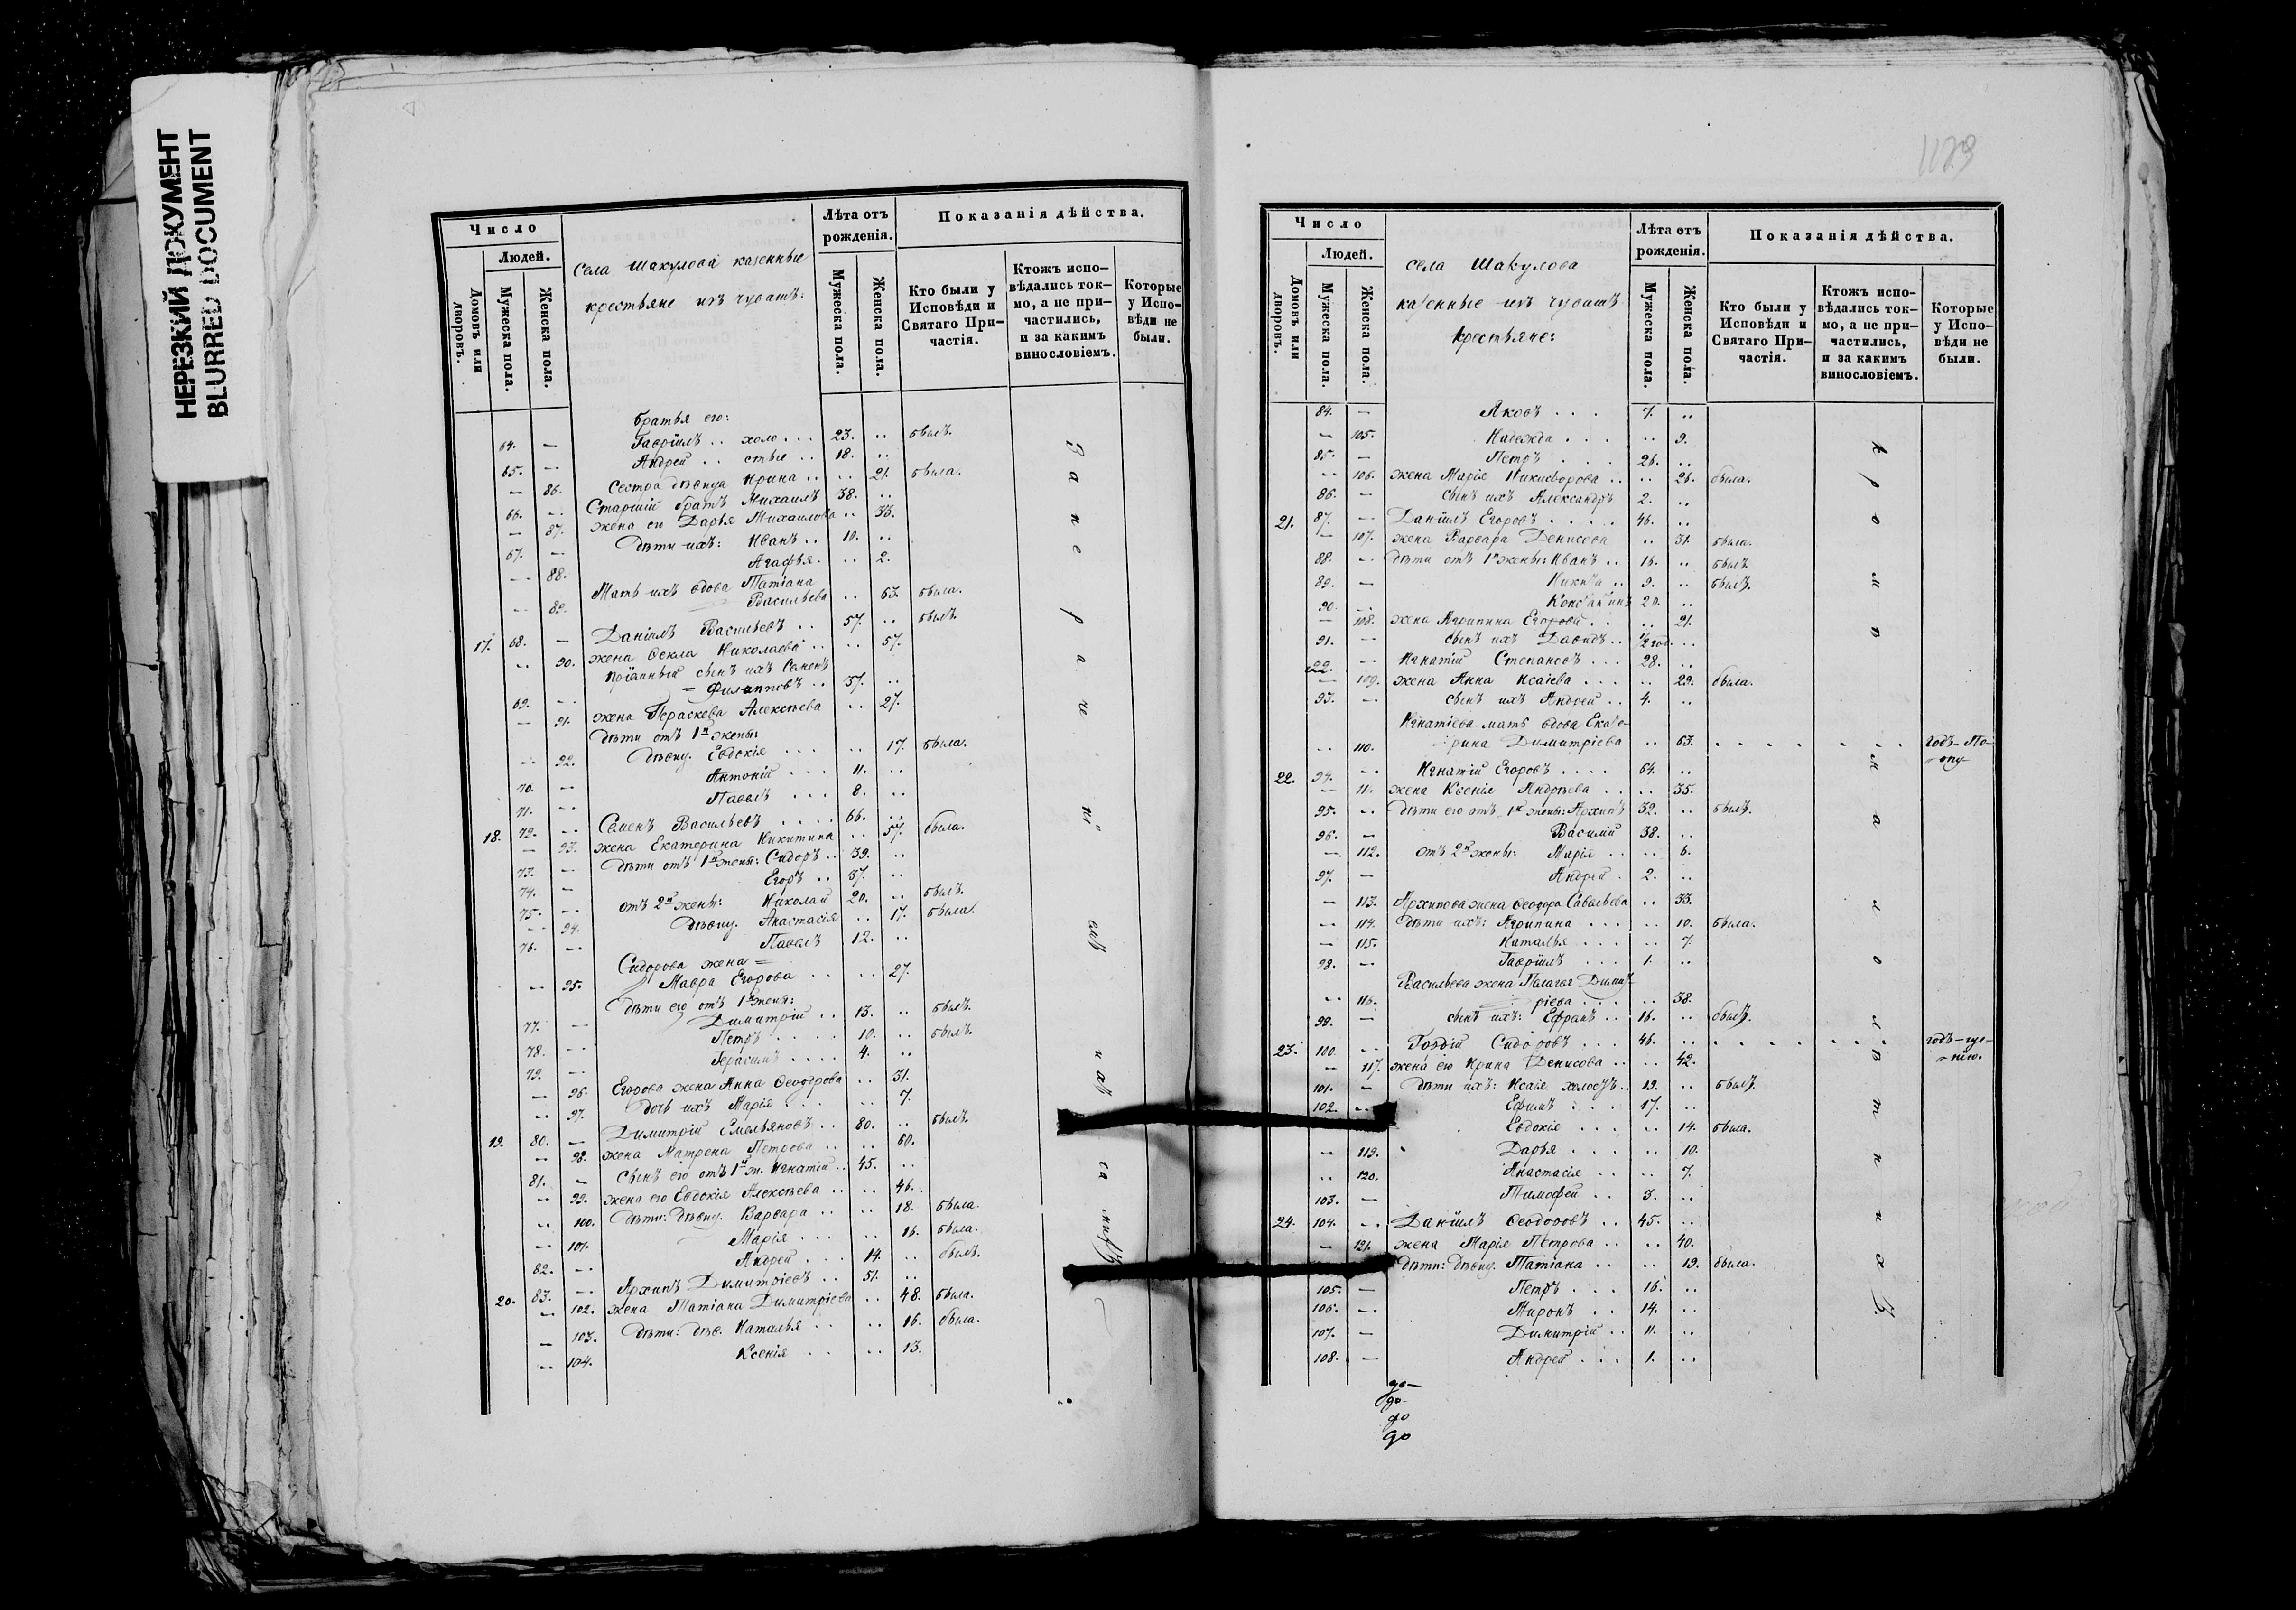 НЕРЕЗКИЙ ДОКУМЕНТ
BLURRED DOCUMENT
Число
Людей.
Домовъ или дворовъ.
Мужеска пола.
Женска пола.
Села Шакулова казенные
крестьяне изъ чувашъ:
Лѣта отъ рожденія.
Мужеска пола.
Женска пола.
Показанія дѣйства.
Кто были у Исповѣди и Святаго При-частія.
Ктожъ испо-вѣдались ток-мо, а не при-частились, и за какимъ винословіемъ.
Которые у Испо-вѣди не были.
братья его:
64. — Гавріилъ .. холо ... 23. .. былъ.
65. — Андрей .. стые .. 18. ..
— 86. Сестра дѣвица Ирина .. .. 21. была.
66. — Старшій братъ Михаилъ 38. ..
— 87. жена его Дарья Михаилова .. 33.
67. — дѣти ихъ: Иванъ .. 10. ..
— 88. Агафья. .. 2.
Мать ихъ вдова Татіана
— 89. Васильева .. 63. была.
17. 68. — Даніилъ Васильевъ .. 57. .. былъ.
— 90. жена Ѳекла Николаева .. .. 57.
Пріемный сынъ ихъ Семенъ
69. — Филипповъ .. 37. ..
— 91. жена Параскева Алексѣева .. 27.
дѣти отъ 1й жены:
— 92. дѣвиц. Евдокія ... .. 17. была.
70. — Антоній ... 11. ..
71. — Павелъ ... 8. ..
18. 72. — Семенъ Васильевъ .... 66. ..
— 93. жена Екатерина Никитина .. 57. была.
73. — дѣти отъ 1й жены: Сидоръ .. 39. ..
74. — Егоръ .. 37. ..
75. — отъ 2й жены: Николай 20. .. былъ.
— 94. дѣвиц. Анастасія .. 17. была.
76. — Павелъ 12. ..
Сидорова жена =
— 95. Мавра Егорова .. .. 27.
дѣти его отъ 1й жены:
77. — Димитрій .. 13. .. былъ.
78. — Петръ ..... 10. .. былъ.
79. — Герасимъ .... 4. ..
— 96. Егорова жена Анна Ѳеодорова .. 31.
— 97. дочь ихъ Марія ... .. 7.
19. 80. — Димитрій Емельяновъ .. 80. .. былъ.
— 98. жена Матрена Петрова .. .. 60.
81. — сынъ его отъ 1й ж. Игнатій .. 45. ..
— 99. жена его Евдокія Алексѣева .. .. 46.
— 100. дѣти: дѣвиц. Варвара .. .. 18. была.
— 101. Марія ... .. 16. была.
82. — Андрей ... 14. .. былъ.
20. 83. — Архипъ Димитріевъ .. 51. ..
— 102. жена Татіана Димитріева .. 48. была.
— 103. дѣти: дѣв. Наталья .. .. 16. была.
— 104. Ксенія .. .. 13.
1129
Число
Людей.
Домовъ или дворовъ.
Мужеска пола.
Женска пола.
села Шакулова
казенные изъ чувашъ
крестьяне:
Лѣта отъ рожденія.
Мужеска пола.
Женска пола.
Показанія дѣйства.
Кто были у Исповѣди и Святаго При-частія.
Ктожъ испо-вѣдались ток-мо, а не при-частились, и за какимъ винословіемъ.
Которые у Испо-вѣди не были.
84. — Яковъ ... 7. ..
— 105. Надежда ... .. 9.
85. — Петръ ... 26. ..
— 106. жена Марія Никифорова .. .. 26. была.
86. — сынъ ихъ Александръ 2. ..
21. 87. — Даніилъ Егоровъ ..... 46. ..
— 107. жена Варвара Денисова .. 31. была.
88. — дѣти отъ 1й жены: Иванъ .. 16. .. былъ
89. — Никита .. 9. .. былъ.
90. — Константинъ 20. ..
— 108. жена Агрипина Егорова .. .. 21.
91. — сынъ ихъ Давидъ .. ½ год. ..
92. — Игнатій Степановъ ... 28. ..
— 109. жена Анна Исаіева ... .. 29. была.
93. — сынъ ихъ Андрей .. 4. ..
Игнатіева мать вдова Екате-
— 110. рина Димитріева .. 63. ....... годъ
22. 94. — Игнатій Егоровъ .... 64. ..
— 111. жена Ксенія Андреева .. .. 35.
95. — дѣти его отъ 1й жены: Архипъ 39. .. былъ.
96. — Василій 38. ..
— 112. отъ 2й жены: Марія .. .. 6.
97. — Андрей . 2. ..
— 113. Архипова жена Ѳеодора Савельева .. 33.
— 114. дѣти ихъ: Агрипина ... .. 10. была.
— 115. Наталья ... .. 7.
98. — Гавріилъ ... 1. ..
Васильева жена Пелагія Димит-
— 116. ріева ... .. 38.
99. — сынъ ихъ: Ефремъ .. 16. .. былъ.
23. 100. — Гордій Сидоровъ ... 46. .. ....... годъ
— 117. жена его Ирина Денисова .. .. 42.
101. — дѣти ихъ: Исаія холостъ .. 19. .. былъ.
102. — Ефимъ ... 17. ..
Евдокія ... .. 14. была.
— 119. Дарья .... .. 10.
— 120. Анастасія .. .. 7.
103. — Тимофей .. 3. ..
24. 104. — Даніилъ Ѳеодоровъ .. 45. ..
— 121. жена Марія Петрова .. .. 40.
дѣти: дѣвиц. Татіана .. .. 19. была.
105. — Петръ ... 16. ..
106. — Миронъ .. 14. ..
107. — Димитрій .. 11. ..
108. — Андрей ... 1. ..
до
до
до
до